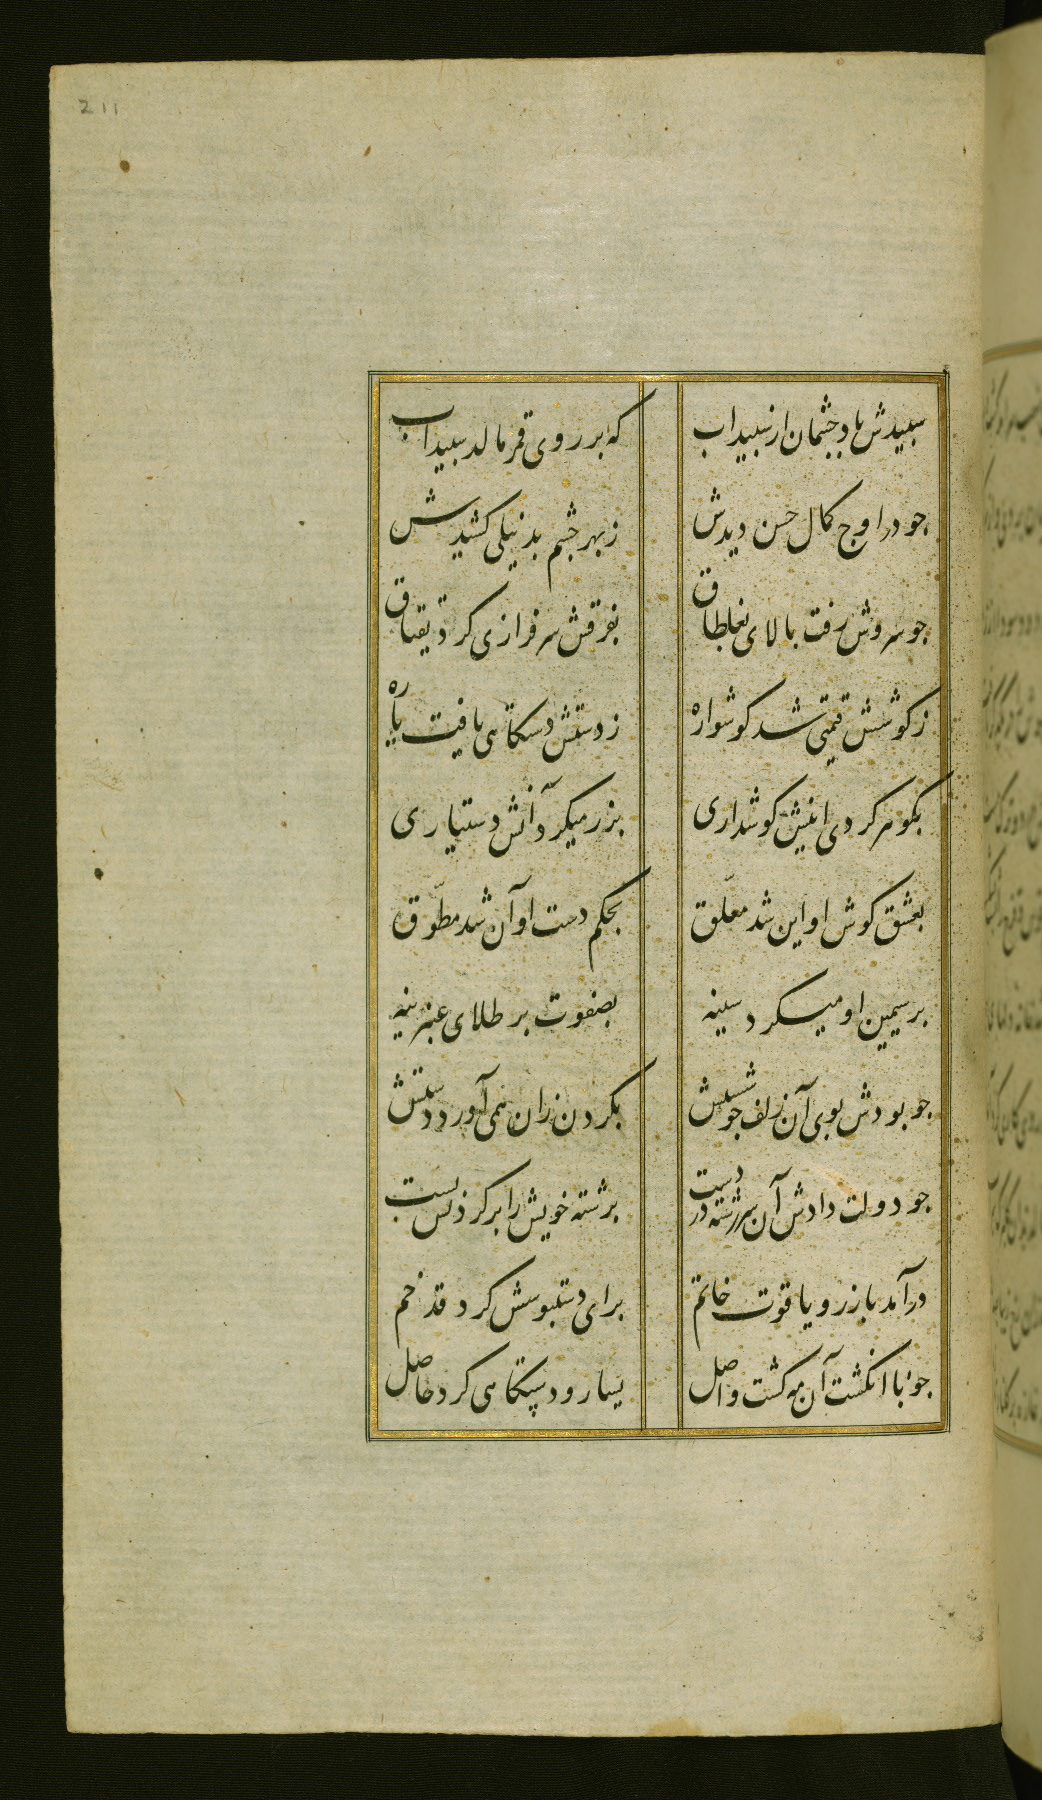 211
سپیدش باد چشمان از سپیداب
که بر روی قمر مالد سپیداب
چو در اوج کمال حسن دیدش
ز بهر چشم بد نیلی کشیدش
چو سروش رفت بالای بغلطاق
بفرقش سرفرازی کرد بقتاق
ز کوشش قیمتی شد کوشواره
ز دستش دستکاهی یافت یاره
بکوهر کردی اینش کوشداری
بزر میکرد آنش دستیاری
بعشق کوش او این شد معلّق
بحکم دست او آن شد مطوّق
بر سیمین او میکرد سینه
بصفوت بر طلای عنبرینه
چو بودش بوی آن زلف چو شستش
بکردن زان همی آورد دستش
چو دولت دادش آن سررشته در دست
برشته خویش را بر کردنش بست
درآمد با زر و یاقوت خاتم
برای دستبوسش کرد قد خم
چو با انکشت آن مه کشت واصل
یسار و دستکاهی کرد حاصل